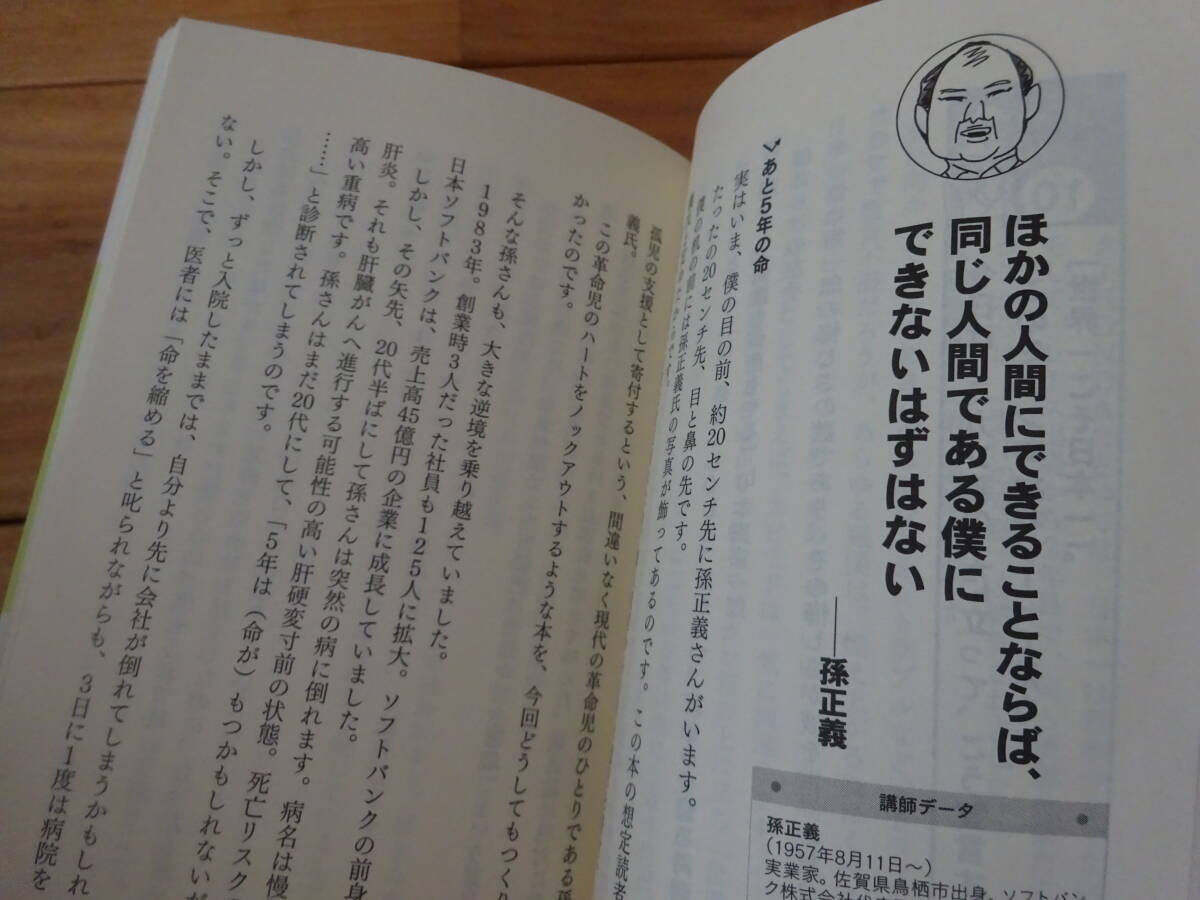 ほかの人間にできることならば、
同じ人間である僕に
できないはずはない
——孫正義
講師データ
孫正義
(1957年8月11日〜)
実業家。佐賀県鳥栖市出身。ソフトバン
ク株式会社代表
あと5年の命
実はいま、僕の目の前、約20センチ先に孫正義さんがいます。
たったの20センチ先、目と鼻の先です。
僕の机の前には孫正義氏の写真が飾ってあるのです。この本の想定読者
孤児の支援として寄付するという、間違いなく現代の革命児のひとりである孫
義氏。
この革命児のハートをノックアウトするような本を、今回どうしてもつくり
かったのです。
そんな孫さんも、大きな逆境を乗り越えていました。
1983年。創業時3人だった社員も125人に拡大。ソフトバンクの前身
日本ソフトバンクは、売上高45億円の企業に成長していました。
しかし、その矢先、20代半ばにして孫さんは突然の病に倒れます。病名は慢
肝炎。それも肝臓がんへ進行する可能性の高い肝硬変寸前の状態。死亡リスクの
高い重病です。孫さんはまだ20代にして、「5年は(命が)もつかもしれないが
……」と診断されてしまうのです。
しかし、ずっと入院したままでは、自分より先に会社が倒れてしまうかもしれ
ない。そこで、医者には「命を縮める」と叱られながらも、3日に1度は病院を